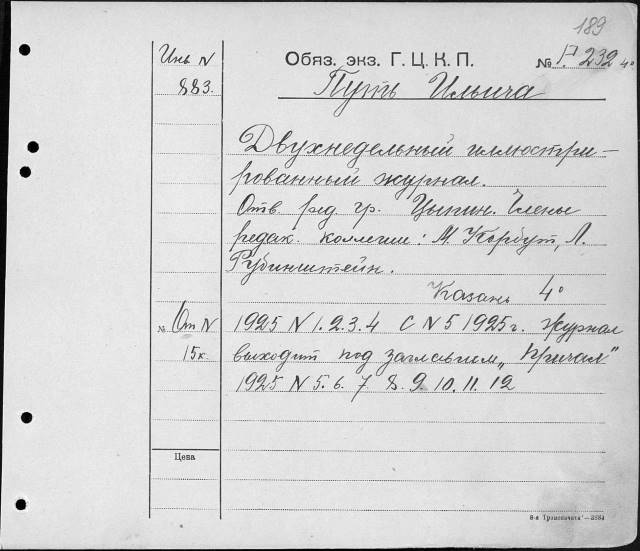 189
Инв N
883.
Обяз. экз. Г. Ц. К. П.
№ 232 4°
Путь Ильича
Двухнедельный иллюстри-
рованный журнал.
Отв. ред. гр. Цыпин. Члены
редак. коллегии: М. Корбут, Л.
Рубинштейн.
Казань 4°
№ От N
15к.
1925 N 1. 2. 3. 4 С N 5 1925 г. журнал
выходит под заглавием „Кричал"
1925 N 5. 6. 7. 8. 9. 10. 11. 12
Цена